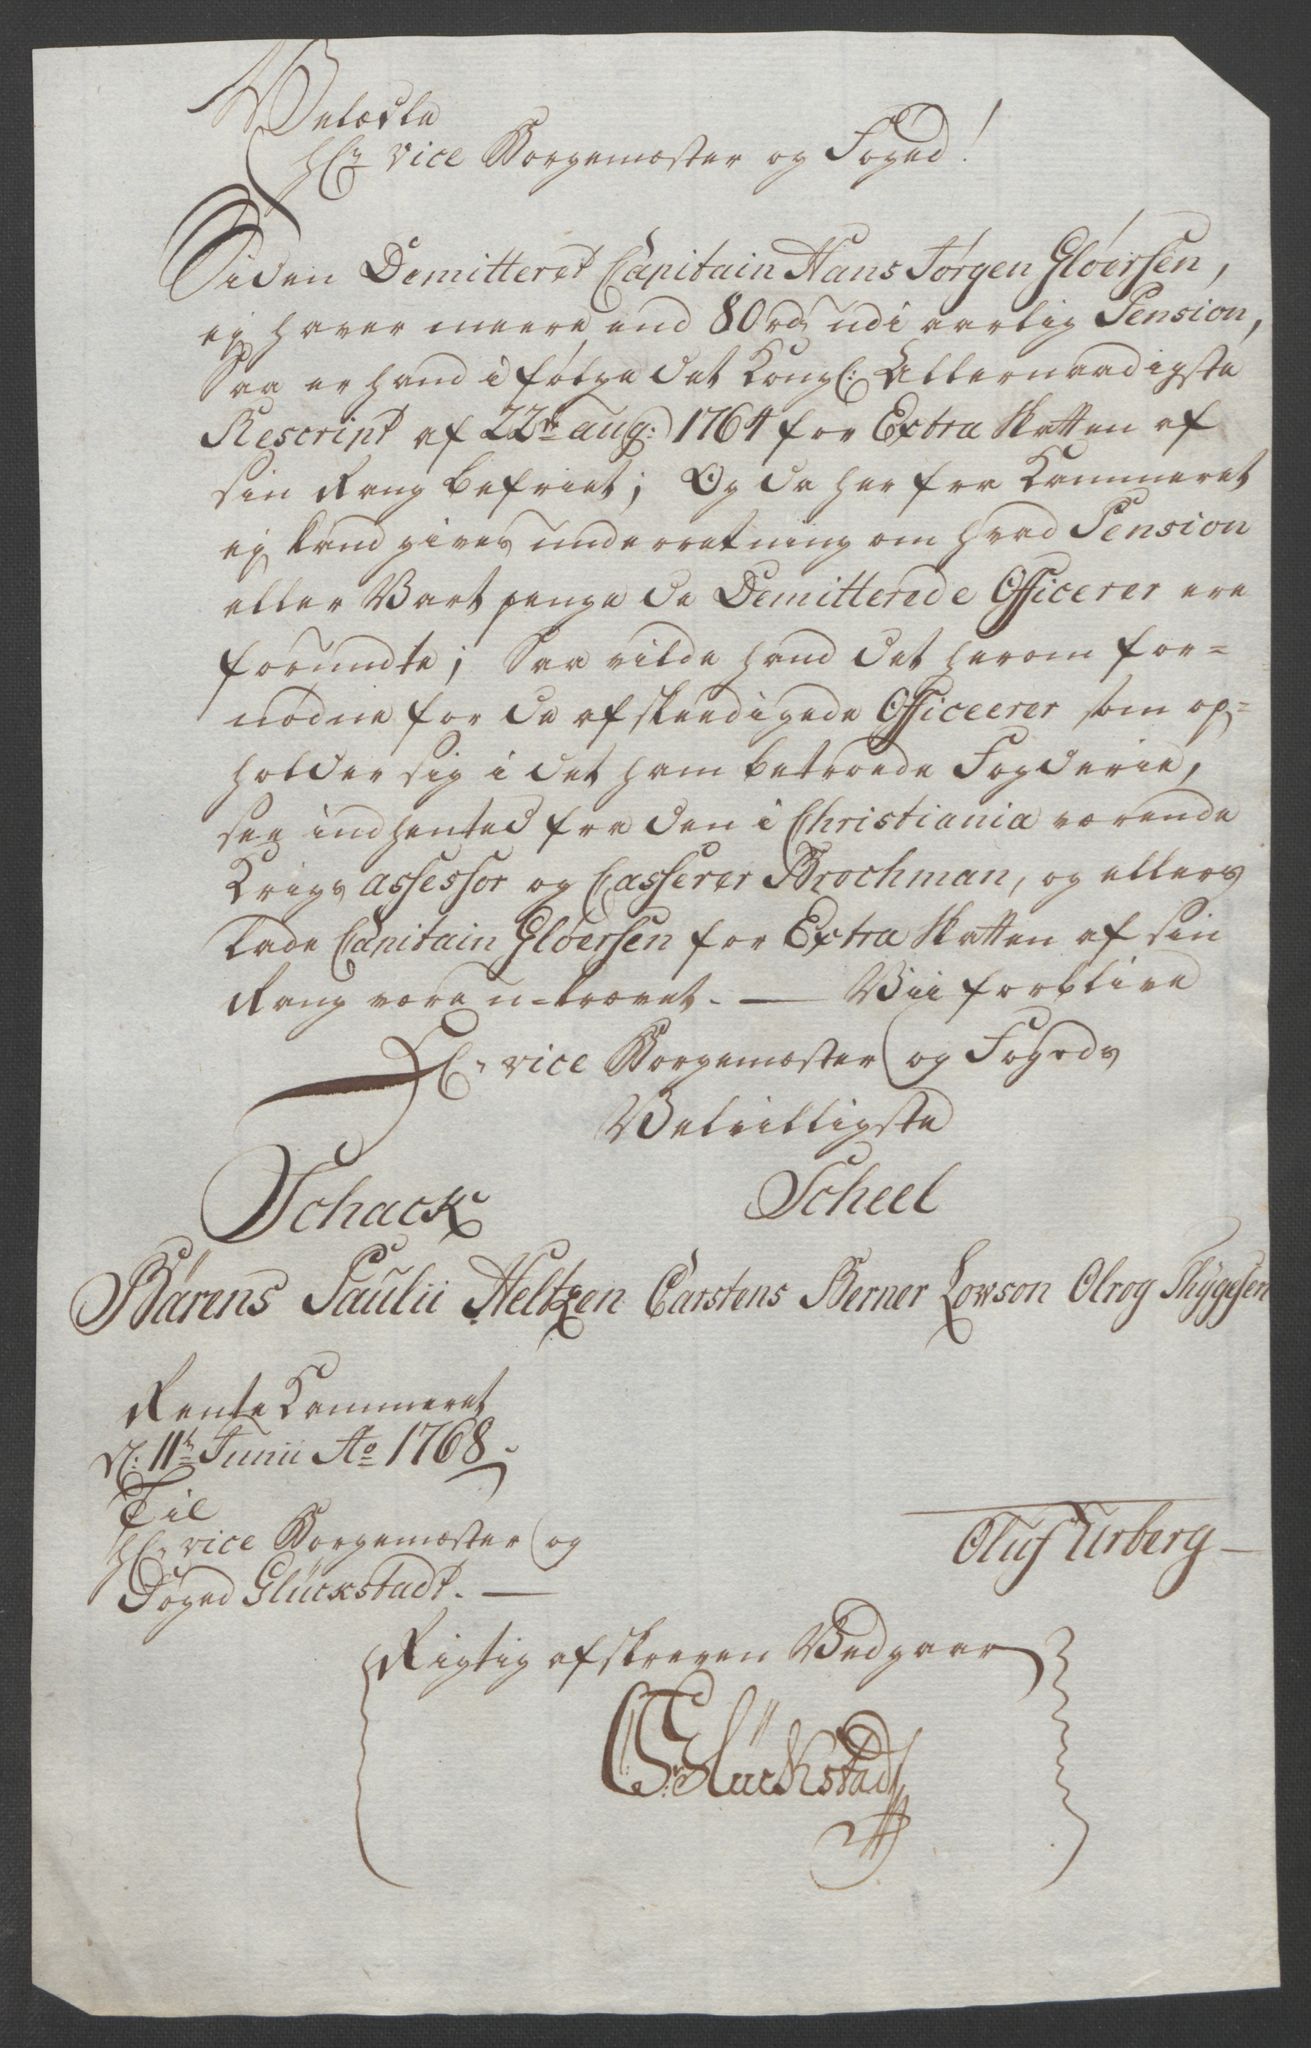 Velædle
Hr. vice Borgemester og Foged!
Siden Demitteret Capitain Hans Jørgen Gløersen,
ej haver meere end 80 rd. udi aarlig Pension,
Saa er hand i følge det Kongl: Allernaadigste
Rescript af 22de aug: 1764 for Extra Skatten af
sin Rang befriet; Og da her fra Kammeret
ej kand gives underretning om hvad Pension
eller Vartpenge de Demitterede Officerer ere
forundte; Saa vilde hand det herom for=
nødne for de afskeedigede Officeerer som op=
holder sig i det ham betroede Fogderie,
see indhented fra den i Christiania værende
Krigs assessor og Casserer Brochman, og ellers
lade Capitain Gløersen for Extra Skatten af sin
Rang være u-krævet. — Vii forblive
Hr. vice Borgemester og Fogeds
Velvilligste
Schack Scheel
Bärens Paulii Heltzen Carstens Berner Lowson Olrog Thygesen
Rente Kammeret
d: 11te Junii Ao 1768.
Til
Hr. vice Borgemester og
Foged Glückstadt. —
Oluf Urberg —
Rigtig afskreven Vedgaaer
Glückstad